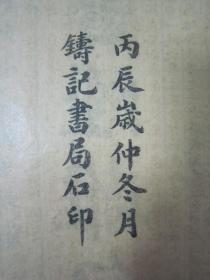 丙辰歲仲冬月
鑄記書局石印